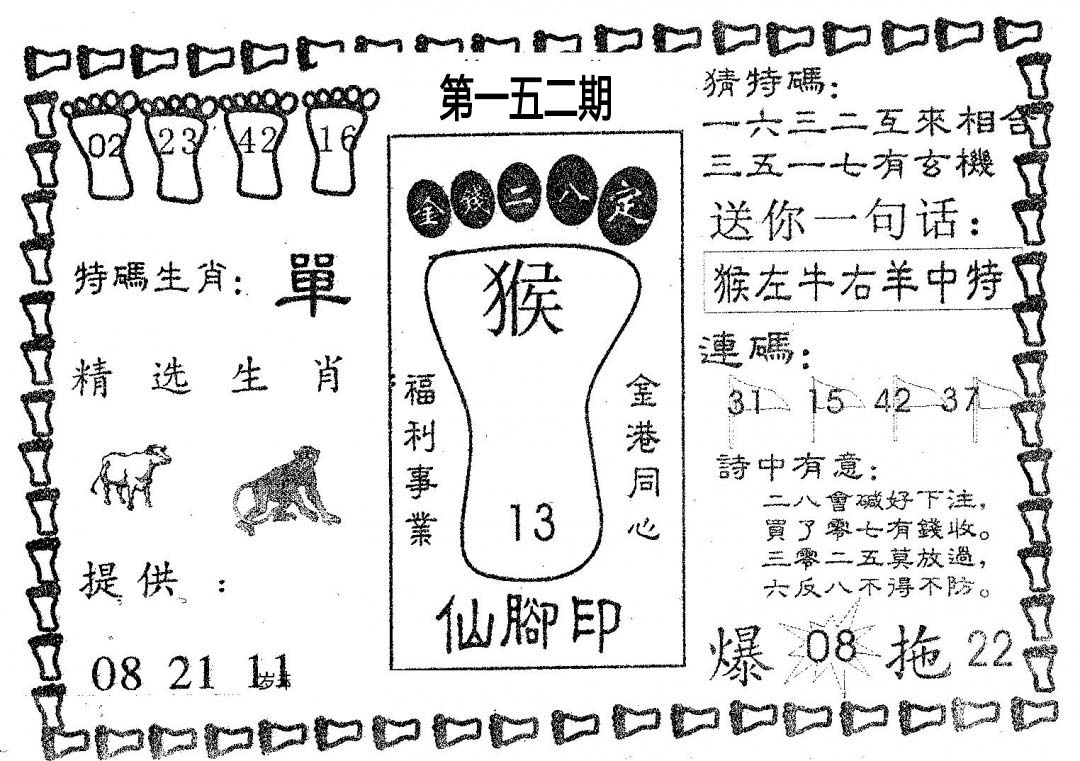 第一五二期
02 23 42 16
特碼生肖： 單
精选生肖
提供：
08 21 11
金錢二八定
猴
福利事業
金港同心
13
仙腳印
猜特碼：
一六三二互來相合
三五一七有玄機
送你一句话：
猴左牛右羊中特
連碼：
31 15 42 37
詩中有意：
二八會碱好下注，
買了零七有錢收。
三零二五莫放過，
六反八不得不防。
爆 08 拖 22